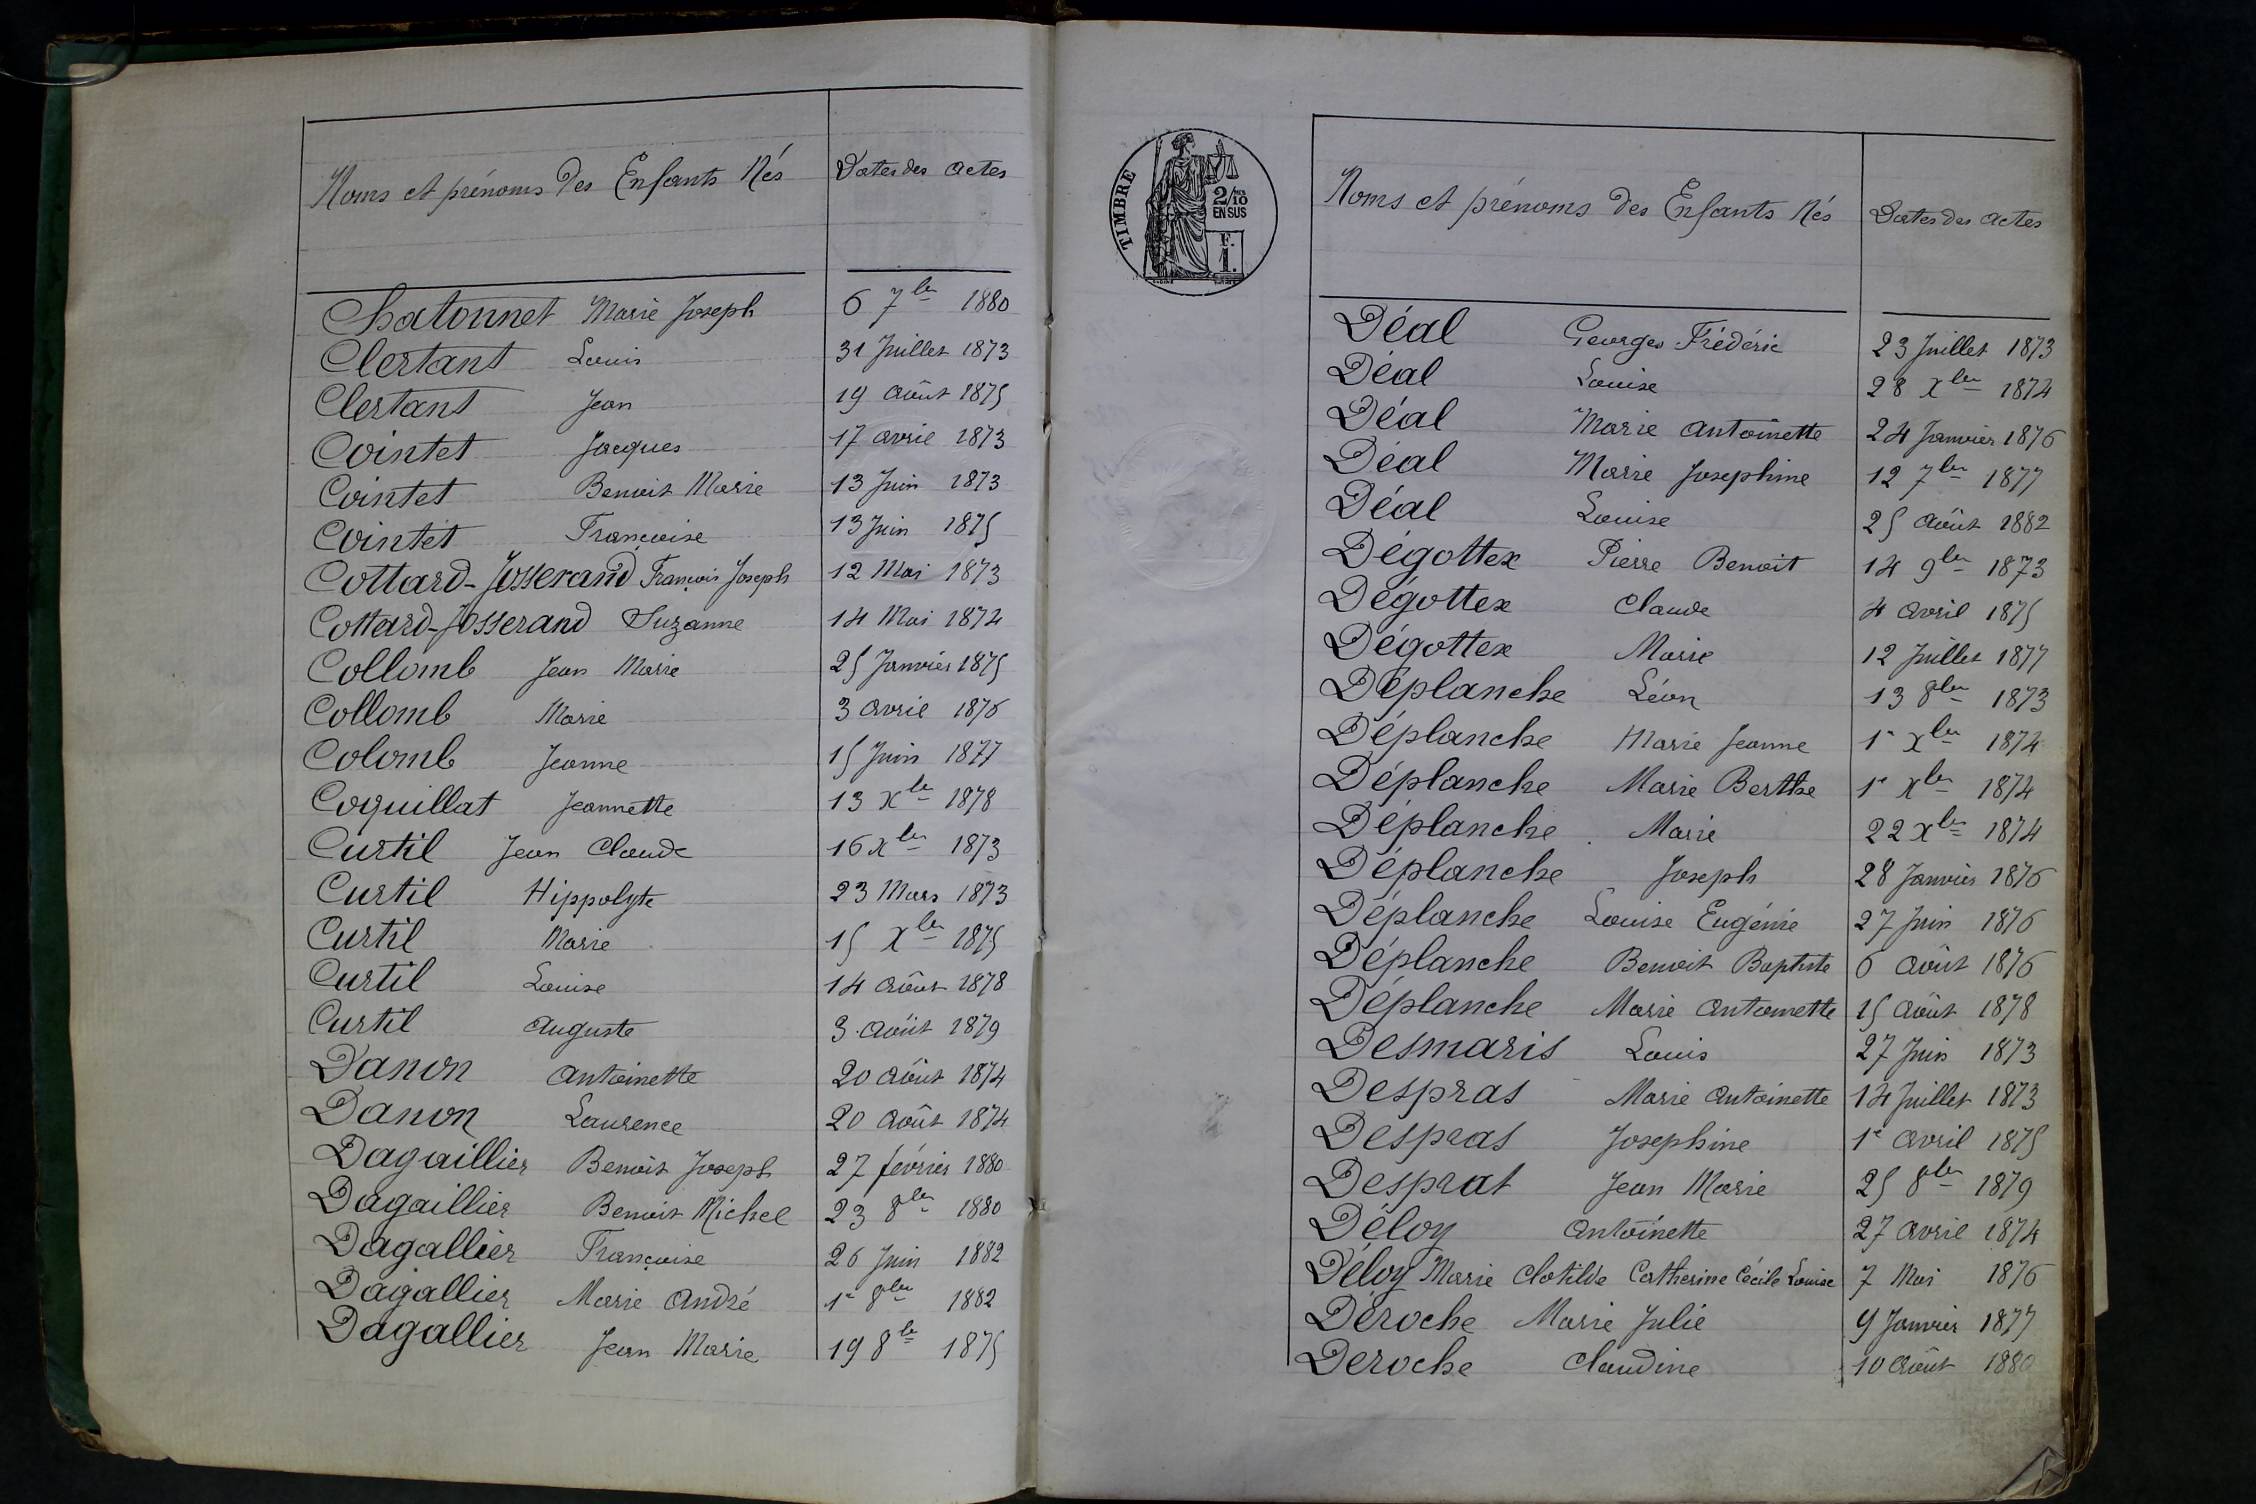 Noms et prénoms des Enfants Nés Dates des actes
Chatonnet Marie Joseph 6 7bre 1880
Clertant Louis 31 Juillet 1873
Clertant Jean 19 août 1875
Cointet Jacques 17 avril 1873
Cointet Benoit Marie 13 Juin 1873
Cointet Françoise 13 Juin 1875
Cottard-Josserand François Joseph 12 Mai 1873
Cottard-Josserand Suzanne 14 Mai 1874
Collomb Jean Marie 25 Janvier 1875
Collomb Marie 3 avril 1876
Colomb Jeanne 15 Juin 1877
Coquillat Jeannette 13 Xbre 1878
Curtil Jean Claude 16 Xbre 1873
Curtil Hippolyte 23 Mars 1873
Curtil Marie 15 Xbre 1875
Curtil Louise 14 août 1878
Curtil auguste 3 août 1879
Danon antoinette 20 août 1874
Danon Laurence 20 août 1874
Dagaillier Benoit Joseph 27 février 1880
Dagaillier Benoit Michel 23 8bre 1880
Dagallier Françoise 26 Juin 1882
Dagallier Marie andré 1er 8bre 1882
Dagallier Jean Marie 19 8bre 1875
TIMBRE
2/10 MES
EN SUS
F.
1.
Noms et prénoms des Enfants Nés Dates des actes
Déal Georges Frédéric 23 Juillet 1873
Déal Louise 28 Xbre 1874
Déal Marie antoinette 24 Janvier 1876
Déal Marie Josephine 12 7bre 1877
Déal Louise 25 août 1882
Dégottex Pierre Benoit 14 9bre 1873
Dégottex Claude 4 avril 1875
Dégottex Marie 12 Juillet 1877
Déplanche Léon 13 8bre 1873
Déplanche Marie Jeanne 1er Xbre 1874
Déplanche Marie Berthe 1er Xbre 1874
Déplanche Marie 22 Xbre 1874
Déplanche Joseph 28 Janvier 1876
Déplanche Louise Eugénie 27 Juin 1876
Déplanche Benoit Baptiste 6 août 1876
Déplanche Marie antoinette 15 août 1878
Desmaris Louis 27 Juin 1873
Despras Marie antoinette 14 Juillet 1873
Despras Josephine 1er avril 1875
Desprat Jean Marie 25 8bre 1879
Déloy antoinette 27 avril 1874
Déloy Marie Clotilde Catherine Cécile Louise 7 Mai 1876
Déroche Marie Julie 9 Janvier 1877
Deroche Claudine 10 août 1880